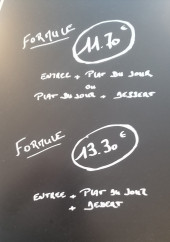 FORMULE
11.70 €
ENTREE + PLAT DU JOUR
OU
PLAT DU JOUR + DESSERT
FORMULE
13.30 €
ENTREE + PLAT DU JOUR
+ DESSERT